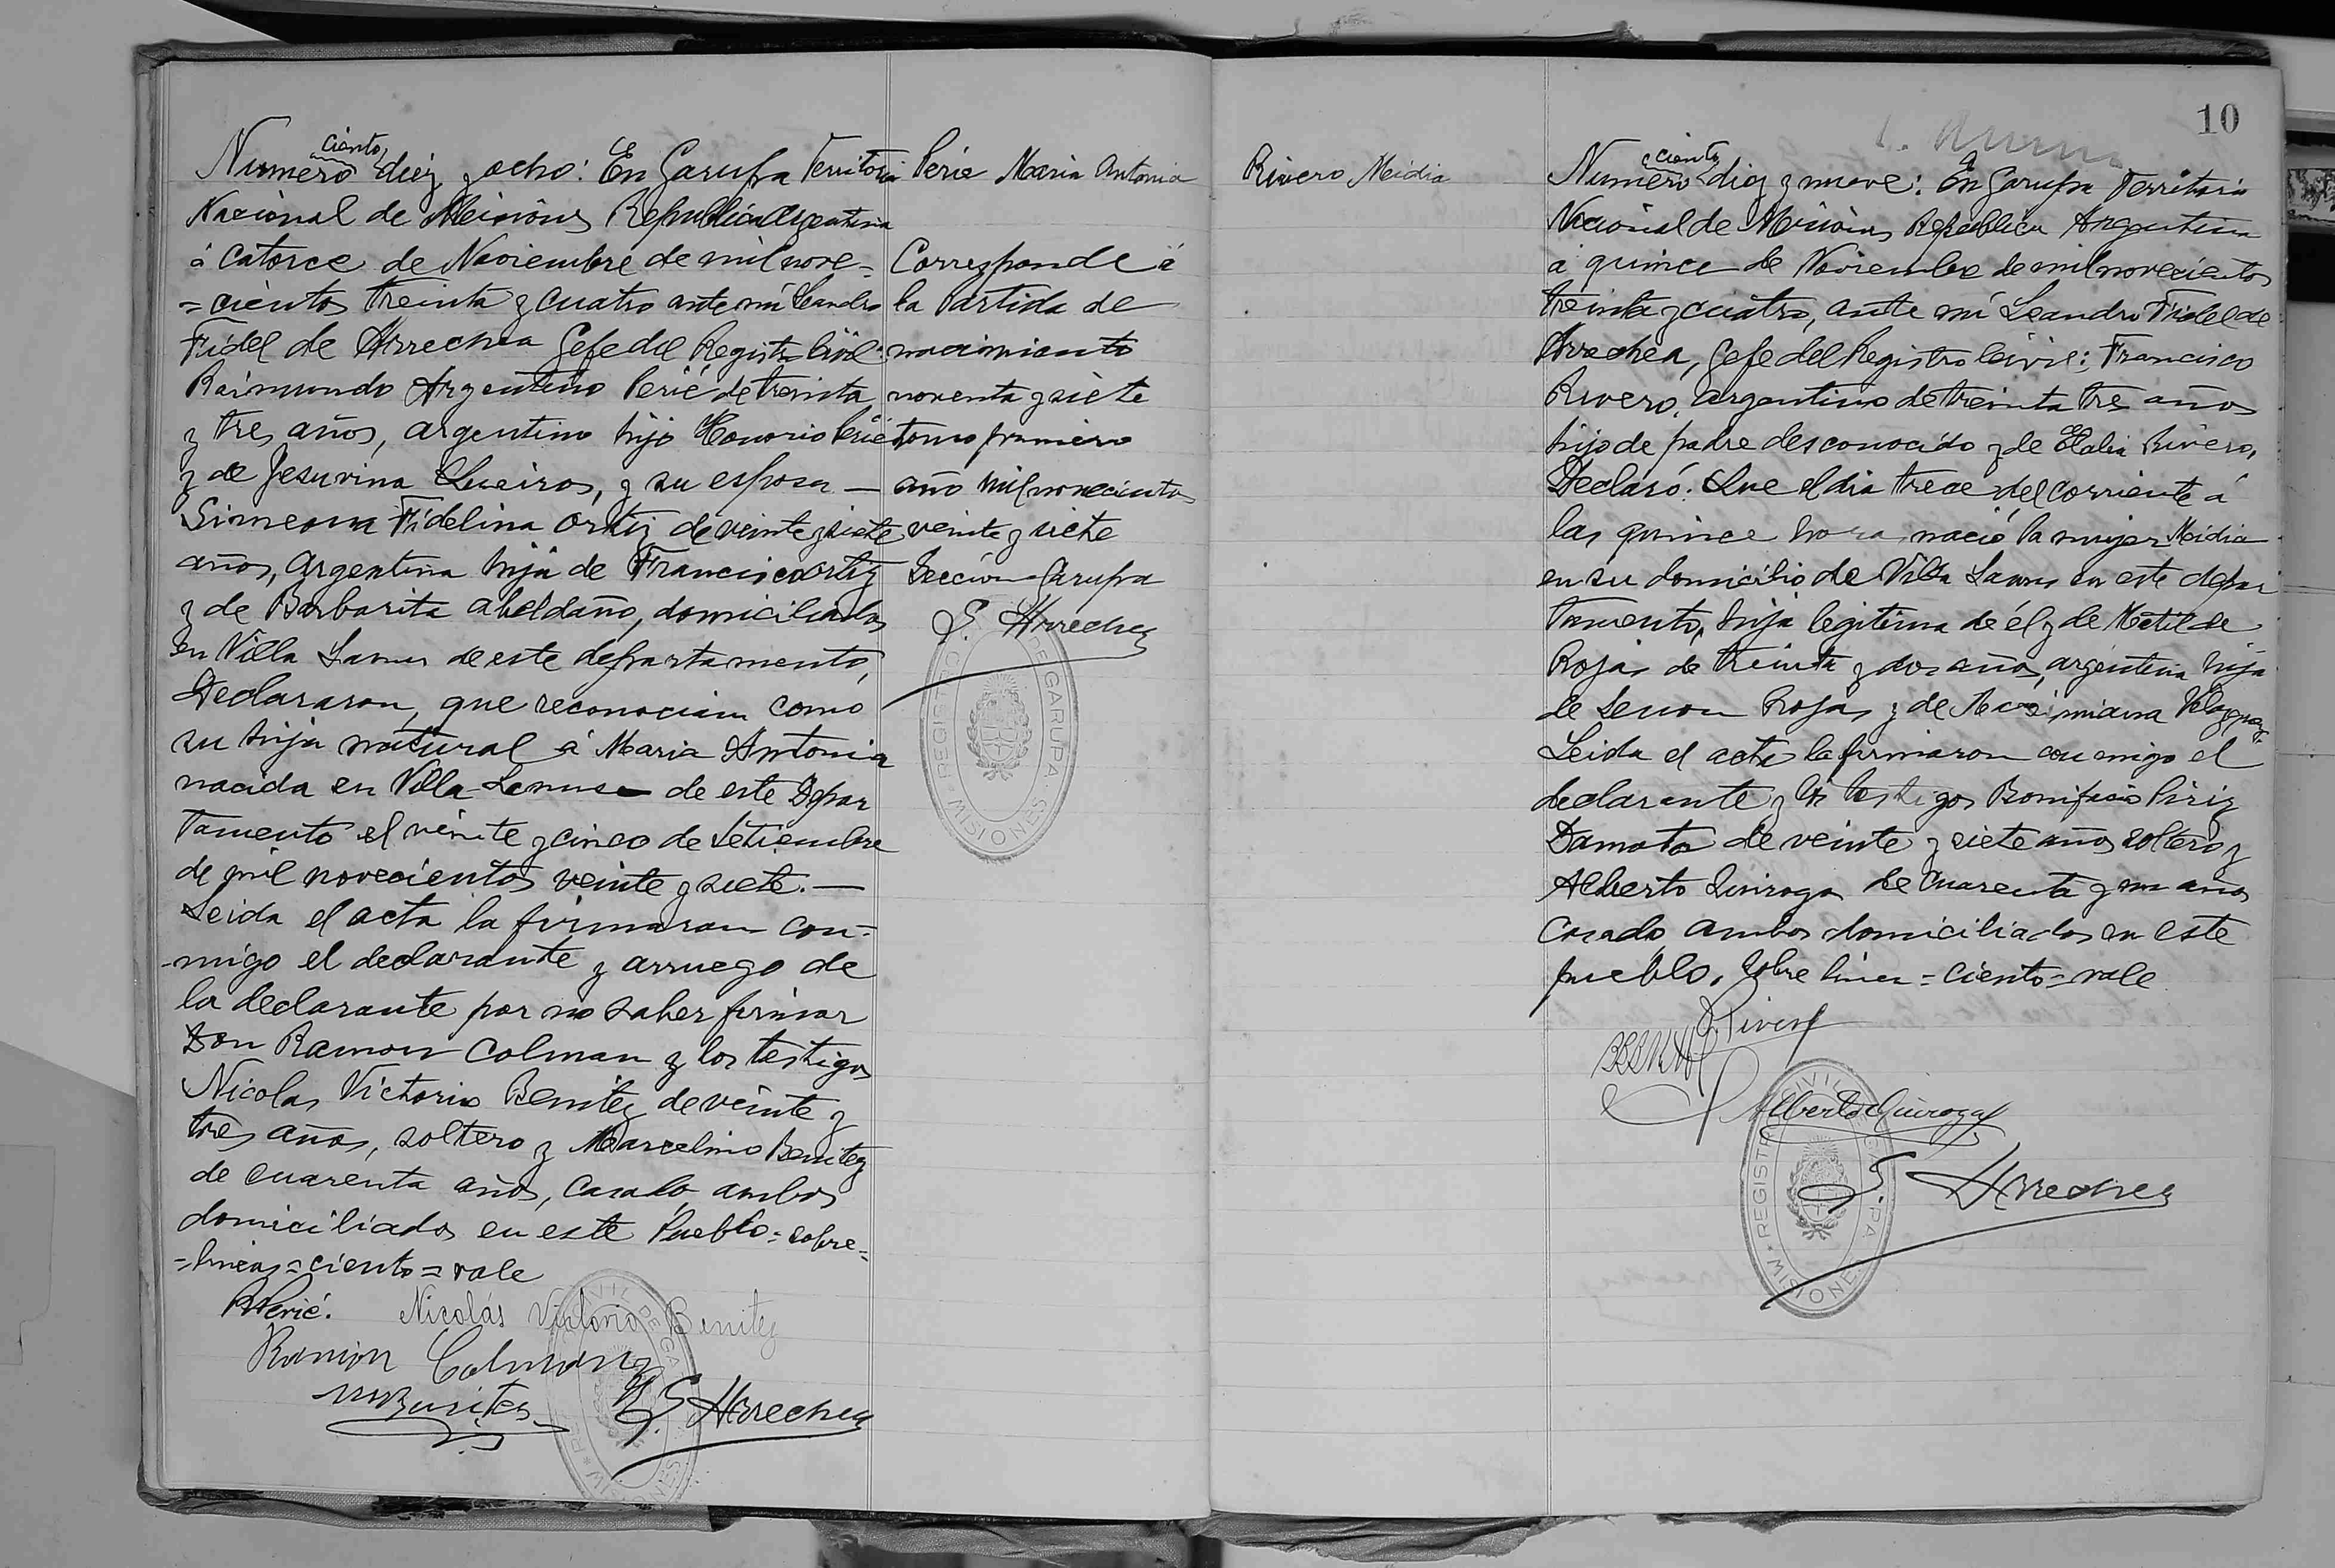 Numero ciento diez y ocho: En Garupa Territorio
Nacional de Misiones Republica Argentina
á catorce de Noviembre de mil nove=
=cientos treinta y cuatro ante mí Leandro
Fidel de Arrechea Gefe del Registro Civil:
Raimundo Argentino Perié de treinta
y tres años, argentino hijo Honorio Perié
y de Jesuvina Queiros, y su esposa —
Simeona Fidelina Ortiz de veinte y siete
años, Argentina hija de Francisco Ortiz
y de Barbarita Abeldaño, domiciliados
en Villa Lanus de este departamento,
Declararon, que reconocian como
su hija natural á Maria Antonia
nacida en Villa Lanus de este Depar
tamento el veinte y cinco de Setiembre
de mil novecientos veinte y siete. —
Leida el acta la firmaron con=
-migo el declarante y arruego de
la declarante por no saber firmar
Don Ramon Colman y los testigos
Nicolas Victorio Benitez de veinte y
tres años, soltero y Marcelino Benitez
de cuarenta años, casado, ambos
domiciliados en este Pueblo = sobre=
=lineas = ciento = vale
RPerié. Nicolás Victorio Benitez
Ramon Colman
MBenites
Arrechea
Perié Maria Antonia
Corresponde á
la Partida de
nacimiento
noventa y siete
tomo primero
año mil novecientos
veinte y siete
Sección Garupa
Arrechea
REGISTRO DE GARUPA * MISIONES
Rivero Meidia
10
Numero ciento diez y nueve: En Garupa Territorio
Nacional de Misiones Republica Argentina
á quince de Noviembre de mil novecientos
treinta y cuatro, ante mí Leandro Fidel de
Arrechea, Gefe del Registro Civil: Francisco
Rivero, argentino de treinta tres años
hijo de padre desconocido y de Elalia Rivero,
Declaró: Que el dia trece del corriente á
las quince hora nació la mujer Meidia
en su domicilio de Villa Lanus en este depar
tamento, hija legitima de él y de Matilde
Rojas de treinta y dos años, argentina hija
de Senon Rojas y de
Leida el acta la firmaron conmigo el
declarante y los testigos Bonifacio Piriz
Damata de veinte y siete años soltero y
Alberto Quiroga de cuarenta y un años
Casado ambos domiciliados en este
pueblo. Sobre linea = ciento = vale
Rivero
Alberto Quiroga
Arrechea